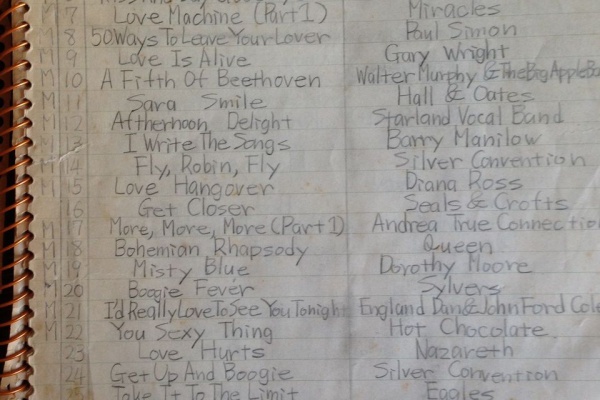 M 7 Love Machine (Part 1) Miracles
M 8 50 Ways To Leave Your Lover Paul Simon
M 9 Love Is Alive Gary Wright
M 10 A Fifth Of Beethoven Walter Murphy & The Big Apple Ba
M 11 Sara Smile Hall & Oates
M 12 Aftherhoon Delight Starland Vocal Band
M 13 I Write The Songs Barry Manilow
M 14 Fly, Robin, Fly Silver Convention
M 15 Love Hangover Diana Ross
16 Get Closer Seals & Crofts
M 17 More, More, More (Part 1) Andrea True Connection
M 18 Bohemian Rhapsody Queen
M 19 Misty Blue Dorothy Moore
M 20 Boogie Fever Sylvers
M 21 I'd Really Love To See You Tonight England Dan & John Ford Cole
M 22 You Sexy Thing Hot Chocolate
23 Love Hurts Nazareth
24 Get Up And Boogie Silver Convention
Take It To The Limit Eagles